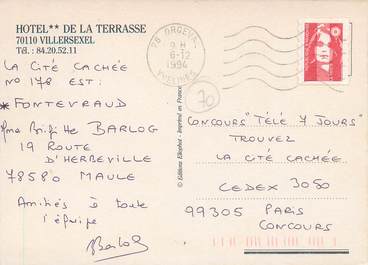 HOTEL** DE LA TERRASSE
70110 VILLERSEXEL
Tél. : 84.20.52.11
LA CITÉ CACHÉE
N° 178 EST :
* FONTEVRAUD
Mme Brigitte BARLOG
19 ROUTE
D'HERBEVILLE
78580 MAULE
Amitiés à toute
l'équipe
Barlog
© Editions Ekophot - Imprimé en France
78 ORGEVAL
9 H
6-12
1994
YVELINES
70
CONCOURS "TÉLÉ 7 JOURS"
TROUVEZ
LA CITÉ CACHÉE
CEDEX 3050
99305 PARIS
CONCOURS